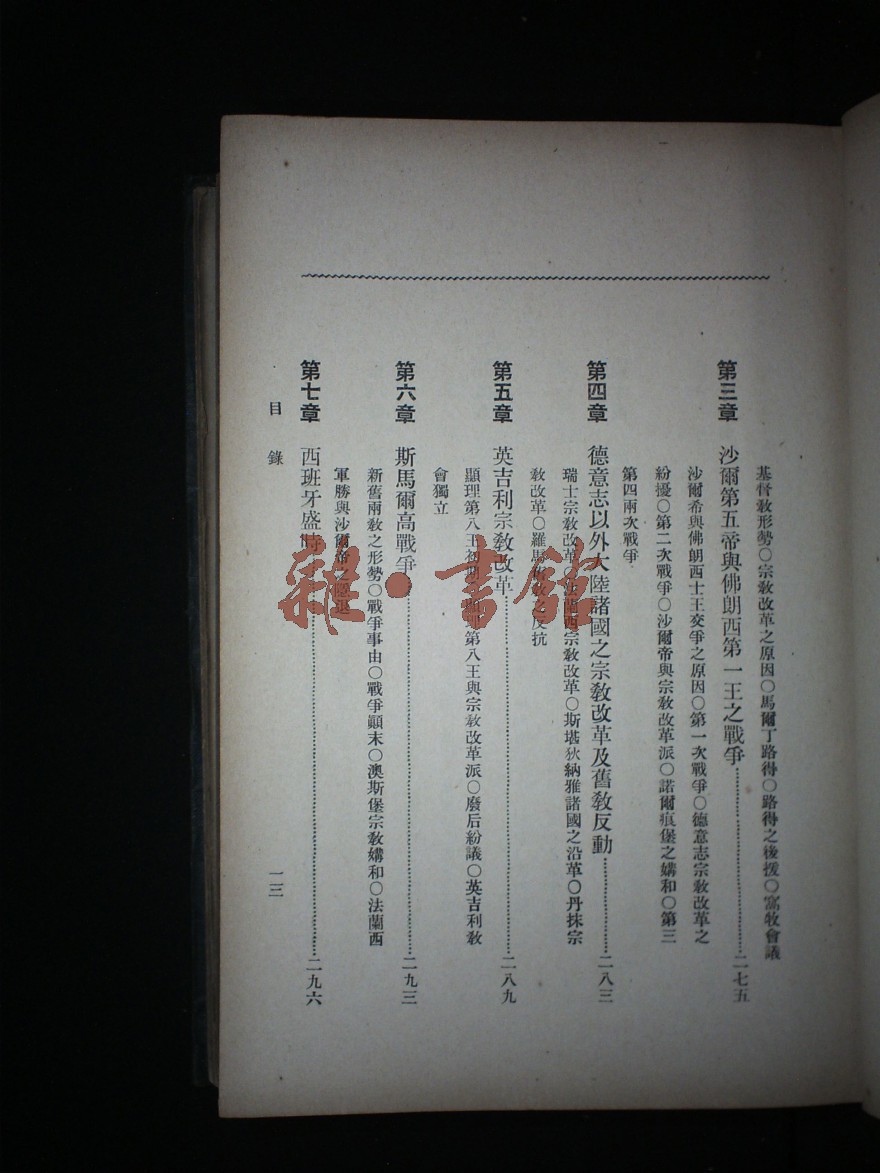 基督教形勢〇宗教改革之原因〇馬爾丁路得〇路得之後援〇寫牧會議
第三章 沙爾第五帝與佛朗西第一王之戰爭 二七五
沙爾希與佛朗西士王交爭之原因〇第一次戰爭〇德意志宗教改革之
紛擾〇第二次戰爭〇沙爾帝與宗教改革派〇諾爾痕堡之媾和〇第三
第四兩次戰爭
第四章 德意志以外大陸諸國之宗教改革及舊教反動 二八三
瑞士宗教改革〇法蘭西宗教改革〇斯堪狄納雅諸國之沿革〇丹抹宗
教改革〇羅馬舊教之反抗
第五章 英吉利宗教改革 二八九
顯理第八王初期〇顯理第八王與宗教改革派〇廢后紛議〇英吉利教
會獨立
第六章 斯馬爾高戰爭 二九三
新舊兩教之形勢〇戰爭事由〇戰爭顚末〇澳斯堡宗教媾和〇法蘭西
軍勝與沙爾帝之隱退
第七章 西班牙盛時 二九六
目錄
一三
雜·書館